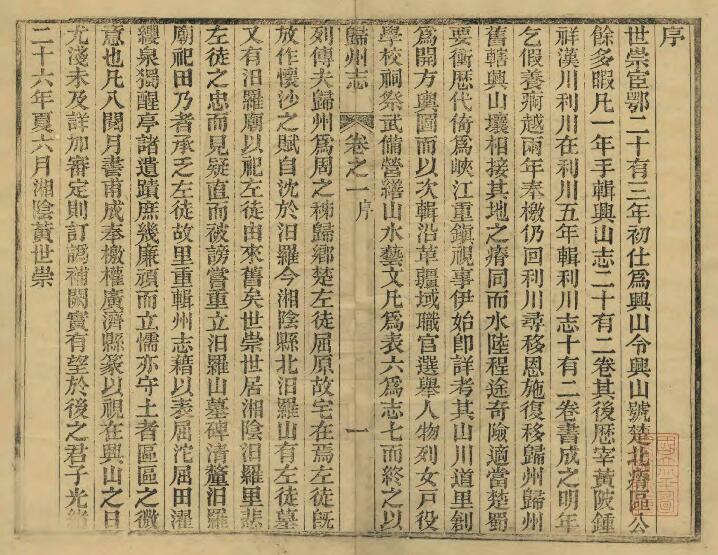 序
世崇宦鄂二十有三年初仕爲興山令興山號楚北瘠區公
餘多暇凡一年手輯興山志二十有二卷其後歷宰黃陂鍾
祥漢川利川在利川五年輯利川志十有二卷書成之明年
乞假養疴越兩年奉檄仍回利川尋移恩施復移歸州歸州
舊轄興山壤相接其地之瘠同而水陸程途奇險適當楚蜀
要衝歷代倚爲峽江重鎮視事伊始卽詳考其山川道里剙
爲開方輿圖而以次輯沿革疆域職官選舉人物列女戸役
學校祠祭武備營繕山水藝文凡爲表六爲志七而終之以
歸州志 卷之一序 一
列傳夫歸州爲周之秭歸鄉楚左徒屈原故宅在焉左徒旣
放作懷沙之賦自沈於汨羅今湘陰縣北汨羅山有左徒墓
又有汨羅廟以祀左徒由來舊矣世崇世居湘陰汨羅里悲
左徒之忠而見疑直而被謗嘗重立汨羅山墓碑清釐汨羅
廟祀田乃者承乏左徒故里重輯州志藉以表屈沱屈田濯
纓泉獨醒亭諸遺蹟庶幾廉頑而立懦亦守土者區區之微
意也凡八閱月書甫成奉檄權廣濟縣篆以視在興山之日
尤淺未及詳加審定則訂譌補闕實有望於後之君子光緒
二十六年夏六月湘陰黃世崇